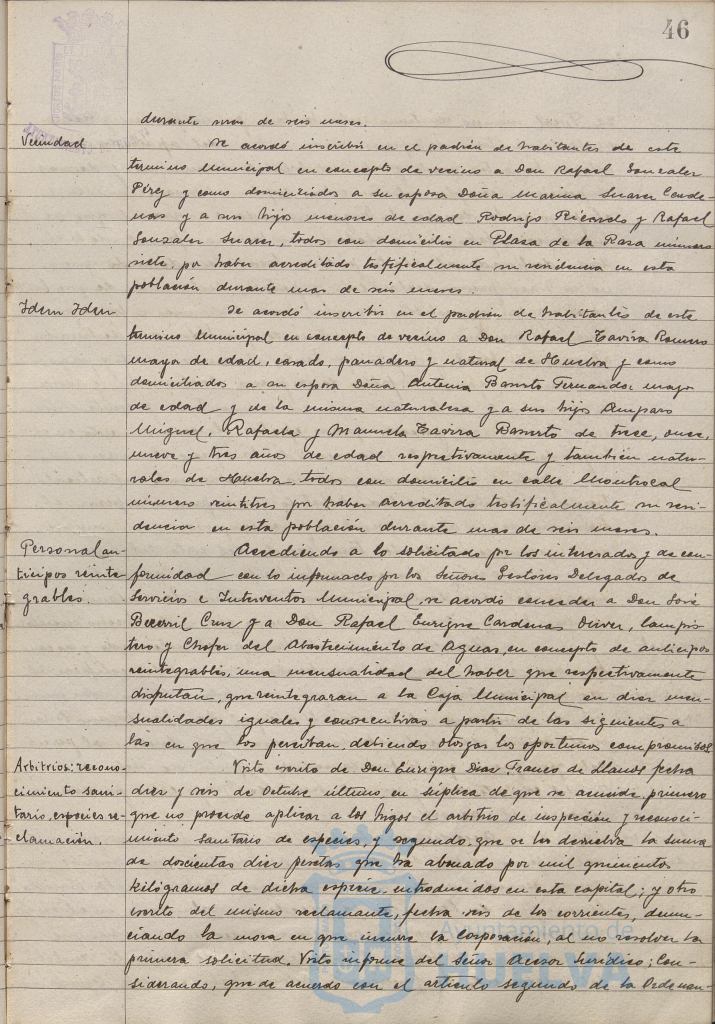 46
durante mas de seis meses.
Vecindad
Se acordó inscribir en el padrón de habitantes de este
termino Municipal en concepto de vecino a Don Rafael Gonzalez
Pérez y como domiciliados a su esposa Doña Marina Suarez Carde-
nas y a sus hijos menores de edad Rodrigo Ricardo y Rafael
Gonzalez Suarez, todos con domicilio en Plaza de la Rasa número
siete por haber acreditado testificalmente su residencia en esta
población durante mas de seis meses.
Idem Idem
Se acordó inscribir en el padrón de habitantes de este
termino Municipal en concepto de vecino a Don Rafael Tavira Romero
mayor de edad, casado, panadero y natural de Huelva y como
domiciliados a su esposa Doña Antonia Barroto Fernandez mayor
de edad y de la misma naturaleza y a sus hijos Amparo
Miguel, Rafaela y Manuela Tavira Barroto de trece, once,
nueve y tres años de edad respectivamente y tambien natu-
rales de Huelva, todos con domicilio en calle Montrocal
número veintitres por haber acreditado testificalmente su resi-
dencia en esta población durante mas de seis meses.
Personal an-
ticipos reinte-
grables.
Accediendo a lo solicitado por los interesados y de con-
formidad con lo informado por los Señores Gestores Delegados de
Servicios e Interventor Municipal, se acordó conceder a Don José
Becerril Cruz y a Don Rafael Enrique Cardenas Oliver, lampis-
tero y Chofer del Abastecimiento de Aguas, en concepto de anticipos
reintegrables, una mensualidad del haber que respectivamente
disfrutan, que reintegraran a la Caja Municipal en diez men-
sualidades iguales y consecutivas a partir de las siguientes a
las en que los perciban, debiendo otorgar los oportunos compromisos.
Arbitrios: recono-
cimiento sani-
tario, especies re-
clamación.
Visto escrito de Don Enrique Diaz Franco de Llanos fecha
diez y seis de Octubre último en súplica de que se acuerde, primero
que no procede aplicar a los higos el arbitrio de inspección y reconoci-
miento sanitario de especies, y segundo, que se les devuelva la suma
de doscientas diez pesetas que ha abonado por mil quinientos
kilógramos de dicha especie introducidos en esta capital; y otro
escrito del mismo reclamante, fecha seis de los corrientes, denun-
ciando la mora en que incurre la corporación, al no resolver la
primera solicitud. Visto informe del Señor Asesor Juridico; Con-
siderando, que de acuerdo con el articulo segundo de la Ordenan-
Ayuntamiento de
HUELVA